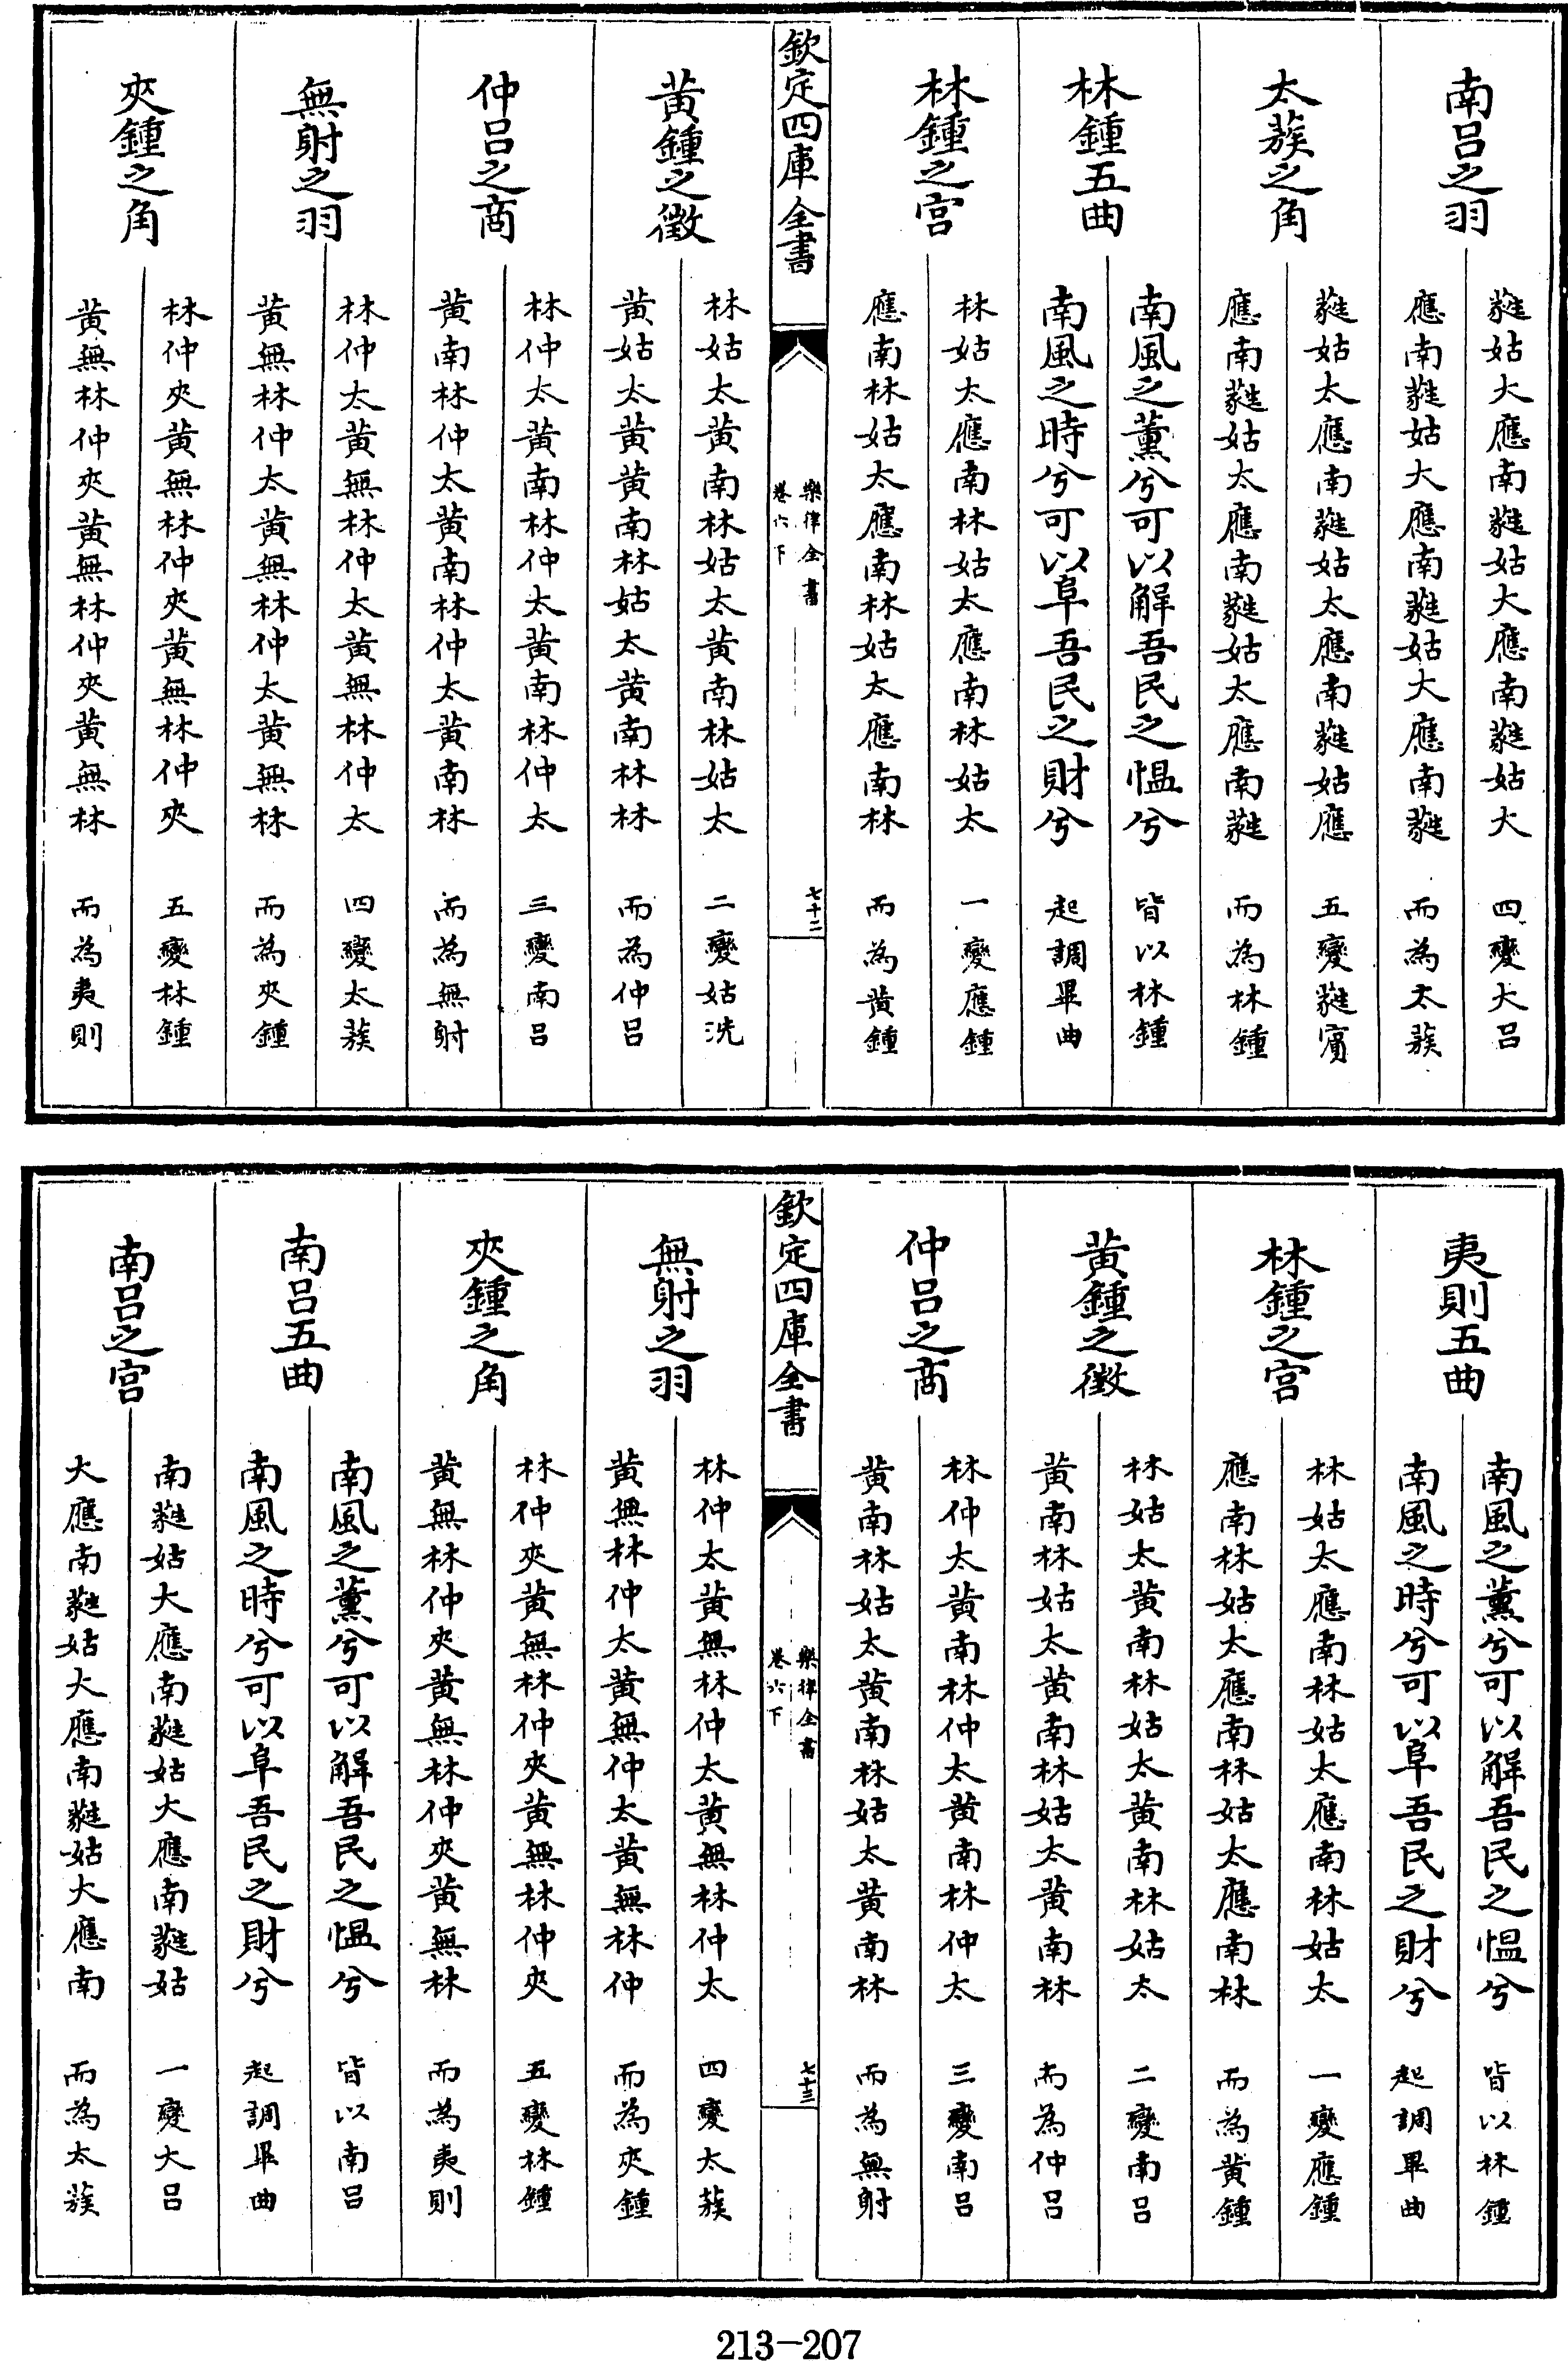 南呂之羽
蕤姑大應南蕤姑大應南蕤姑大　四變大呂
應南蕤姑大應南蕤姑大應南蕤　而為太蔟
太蔟之角
蕤姑太應南蕤姑太應南蕤姑應　五變蕤賔
應南蕤姑太應南蕤姑太應南蕤　而為林鍾
林鍾五曲
南風之薰兮可以解吾民之愠兮　皆以林鍾
南風之時兮可以阜吾民之財兮　起調畢曲
林鍾之宫
林姑太應南林姑太應南林姑太　一變應鍾
應南林姑太應南林姑太應南林　而為黄鍾
欽定四庫全書
樂律全書
卷六下
七十二
黄鍾之徵
林姑太黄南林姑太黄南林姑太　二變姑洗
黄姑太黄黄南林姑太黄南林林　而為仲呂
仲呂之商
林仲太黄南林仲太黄南林仲太　三變南呂
黄南林仲太黄南林仲太黄南林　而為無射
無射之羽
林仲太黄無林仲太黄無林仲太　四變太蔟
黄無林仲太黄無林仲太黄無林　而為夾鍾
夾鍾之角
林仲夾黄無林仲夾黄無林仲夾　五變林鍾
黄無林仲夾黄無林仲夾黄無林　而為夷則
夷則五曲
南風之薰兮可以解吾民之愠兮　皆以林鍾
南風之時兮可以阜吾民之財兮　起調畢曲
林鍾之宫
林姑太應南林姑太應南林姑太　一變應鍾
應南林姑太應南林姑太應南林　而為黄鍾
黄鍾之徵
林姑太黄南林姑太黄南林姑太　二變南呂
黄南林姑太黄南林姑太黄南林　而為仲呂
仲呂之商
林仲太黄南林仲太黄南林仲太　三變南呂
黄南林姑太黄南林姑太黄南林　而為無射
欽定四庫全書
樂律全書
卷六下
七十三
無射之羽
林仲太黄無林仲太黄無林仲太　四變太蔟
黄無林仲太黄無仲太黄無林仲　而為夾鍾
夾鍾之角
林仲夾黄無林仲夾黄無林仲夾　五變林鍾
黄無林仲夾黄無林仲夾黄無林　而為夷則
南呂五曲
南風之薰兮可以解吾民之愠兮　皆以南呂
南風之時兮可以阜吾民之財兮　起調畢曲
南呂之宫
南蕤姑大應南蕤姑大應南蕤姑　一變大呂
大應南蕤姑大應南蕤姑大應南　而為太蔟
213-207